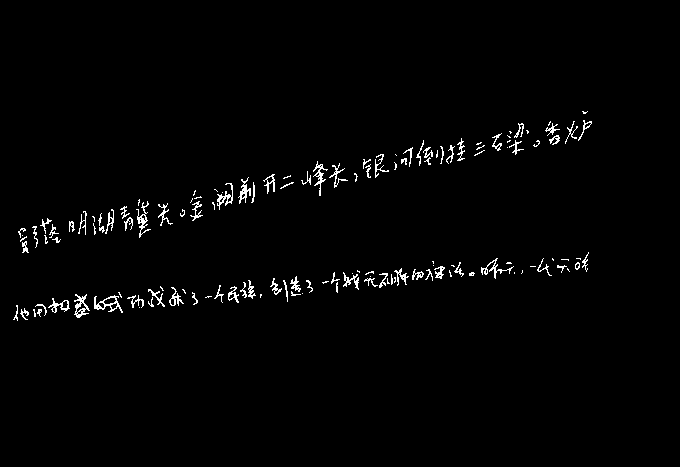 影落明湖青黛光。金阙前开二峰长,银河倒挂三石梁。香炉
他用极盛的武功成就了一个民族,创造了一个战无不胜的神话。昨天,一代天骄